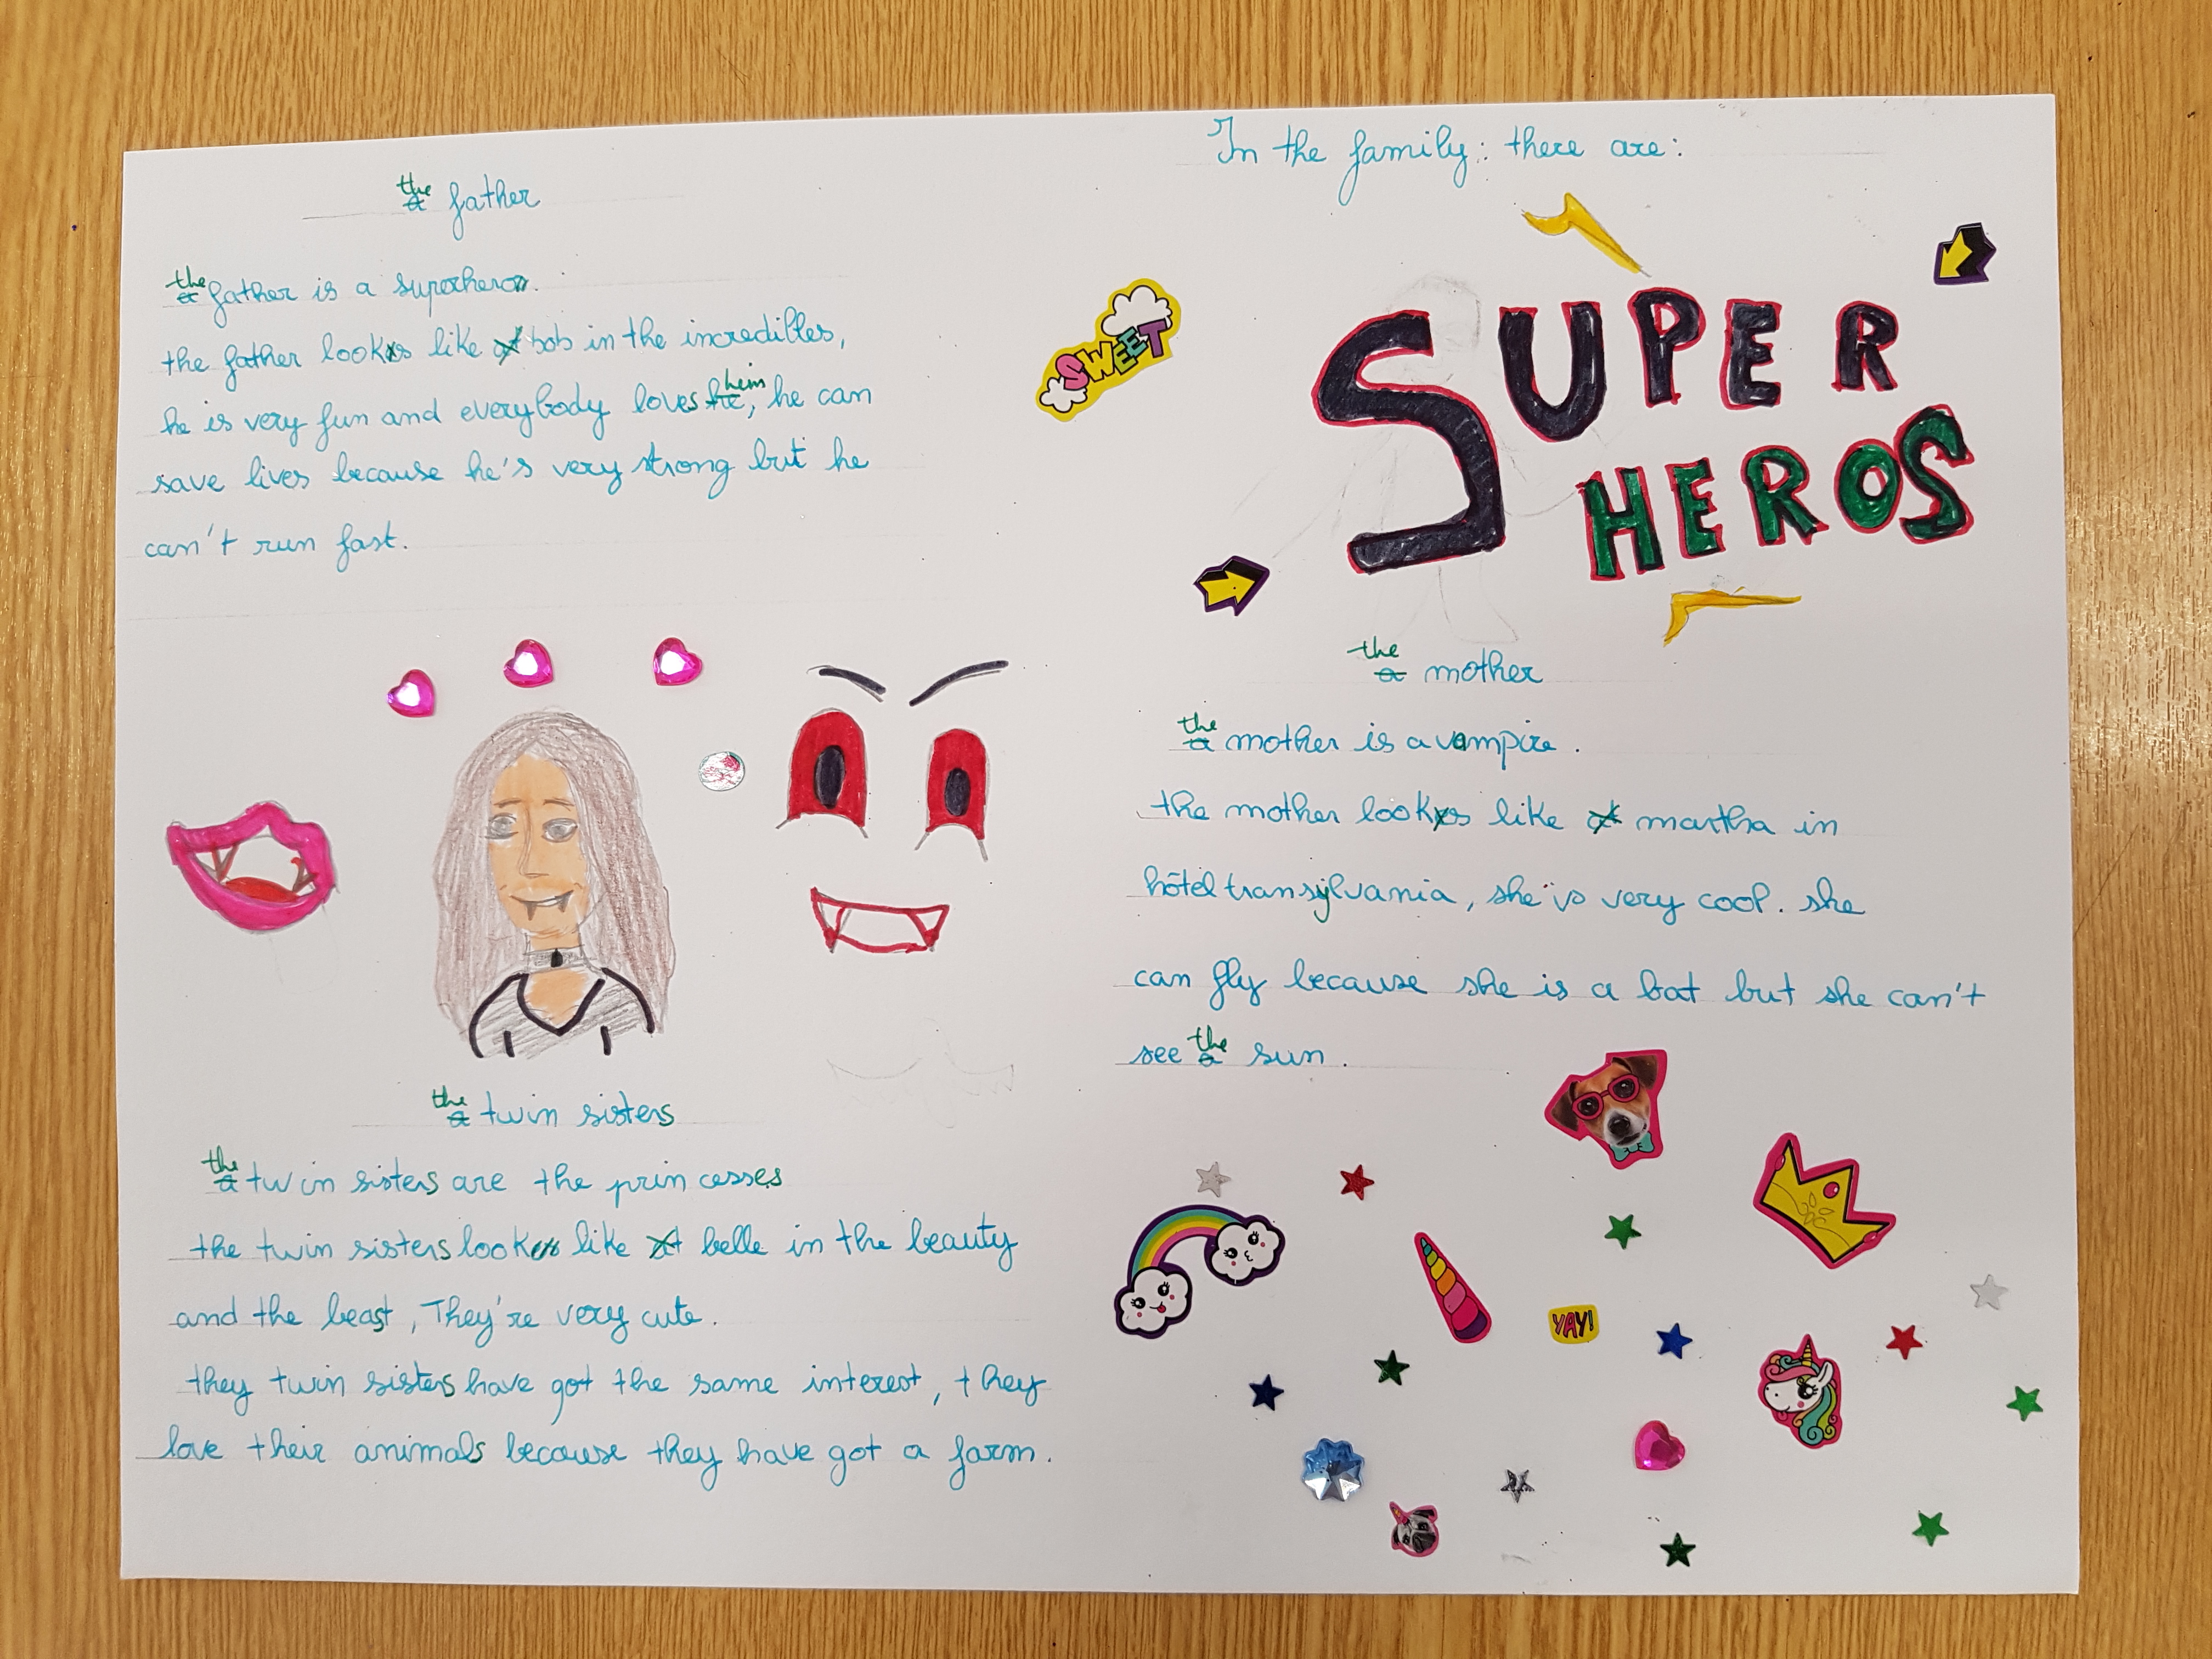 the
a father
the
a father is a superhero.
the father looks like bob in the incredilles,
him
he is very fun and everybody loves he, he can
save lives because he's very strong but he
can't run fast.
the
a twin sisters
the
a twin sisters are the princesses
the twin sisters look like belle in the beauty
and the beast, They're very cute.
they twin sisters have got the same interest, they
love their animals because they have got a farm.
In the family: there are:
SWEET
SUPER
HEROS
the
a mother
the
a mother is a vampire.
the mother looks like martha in
hôtel transylvania, she is very cool. she
can fly because she is a bat but she can't
the
see a sun.
YAY!